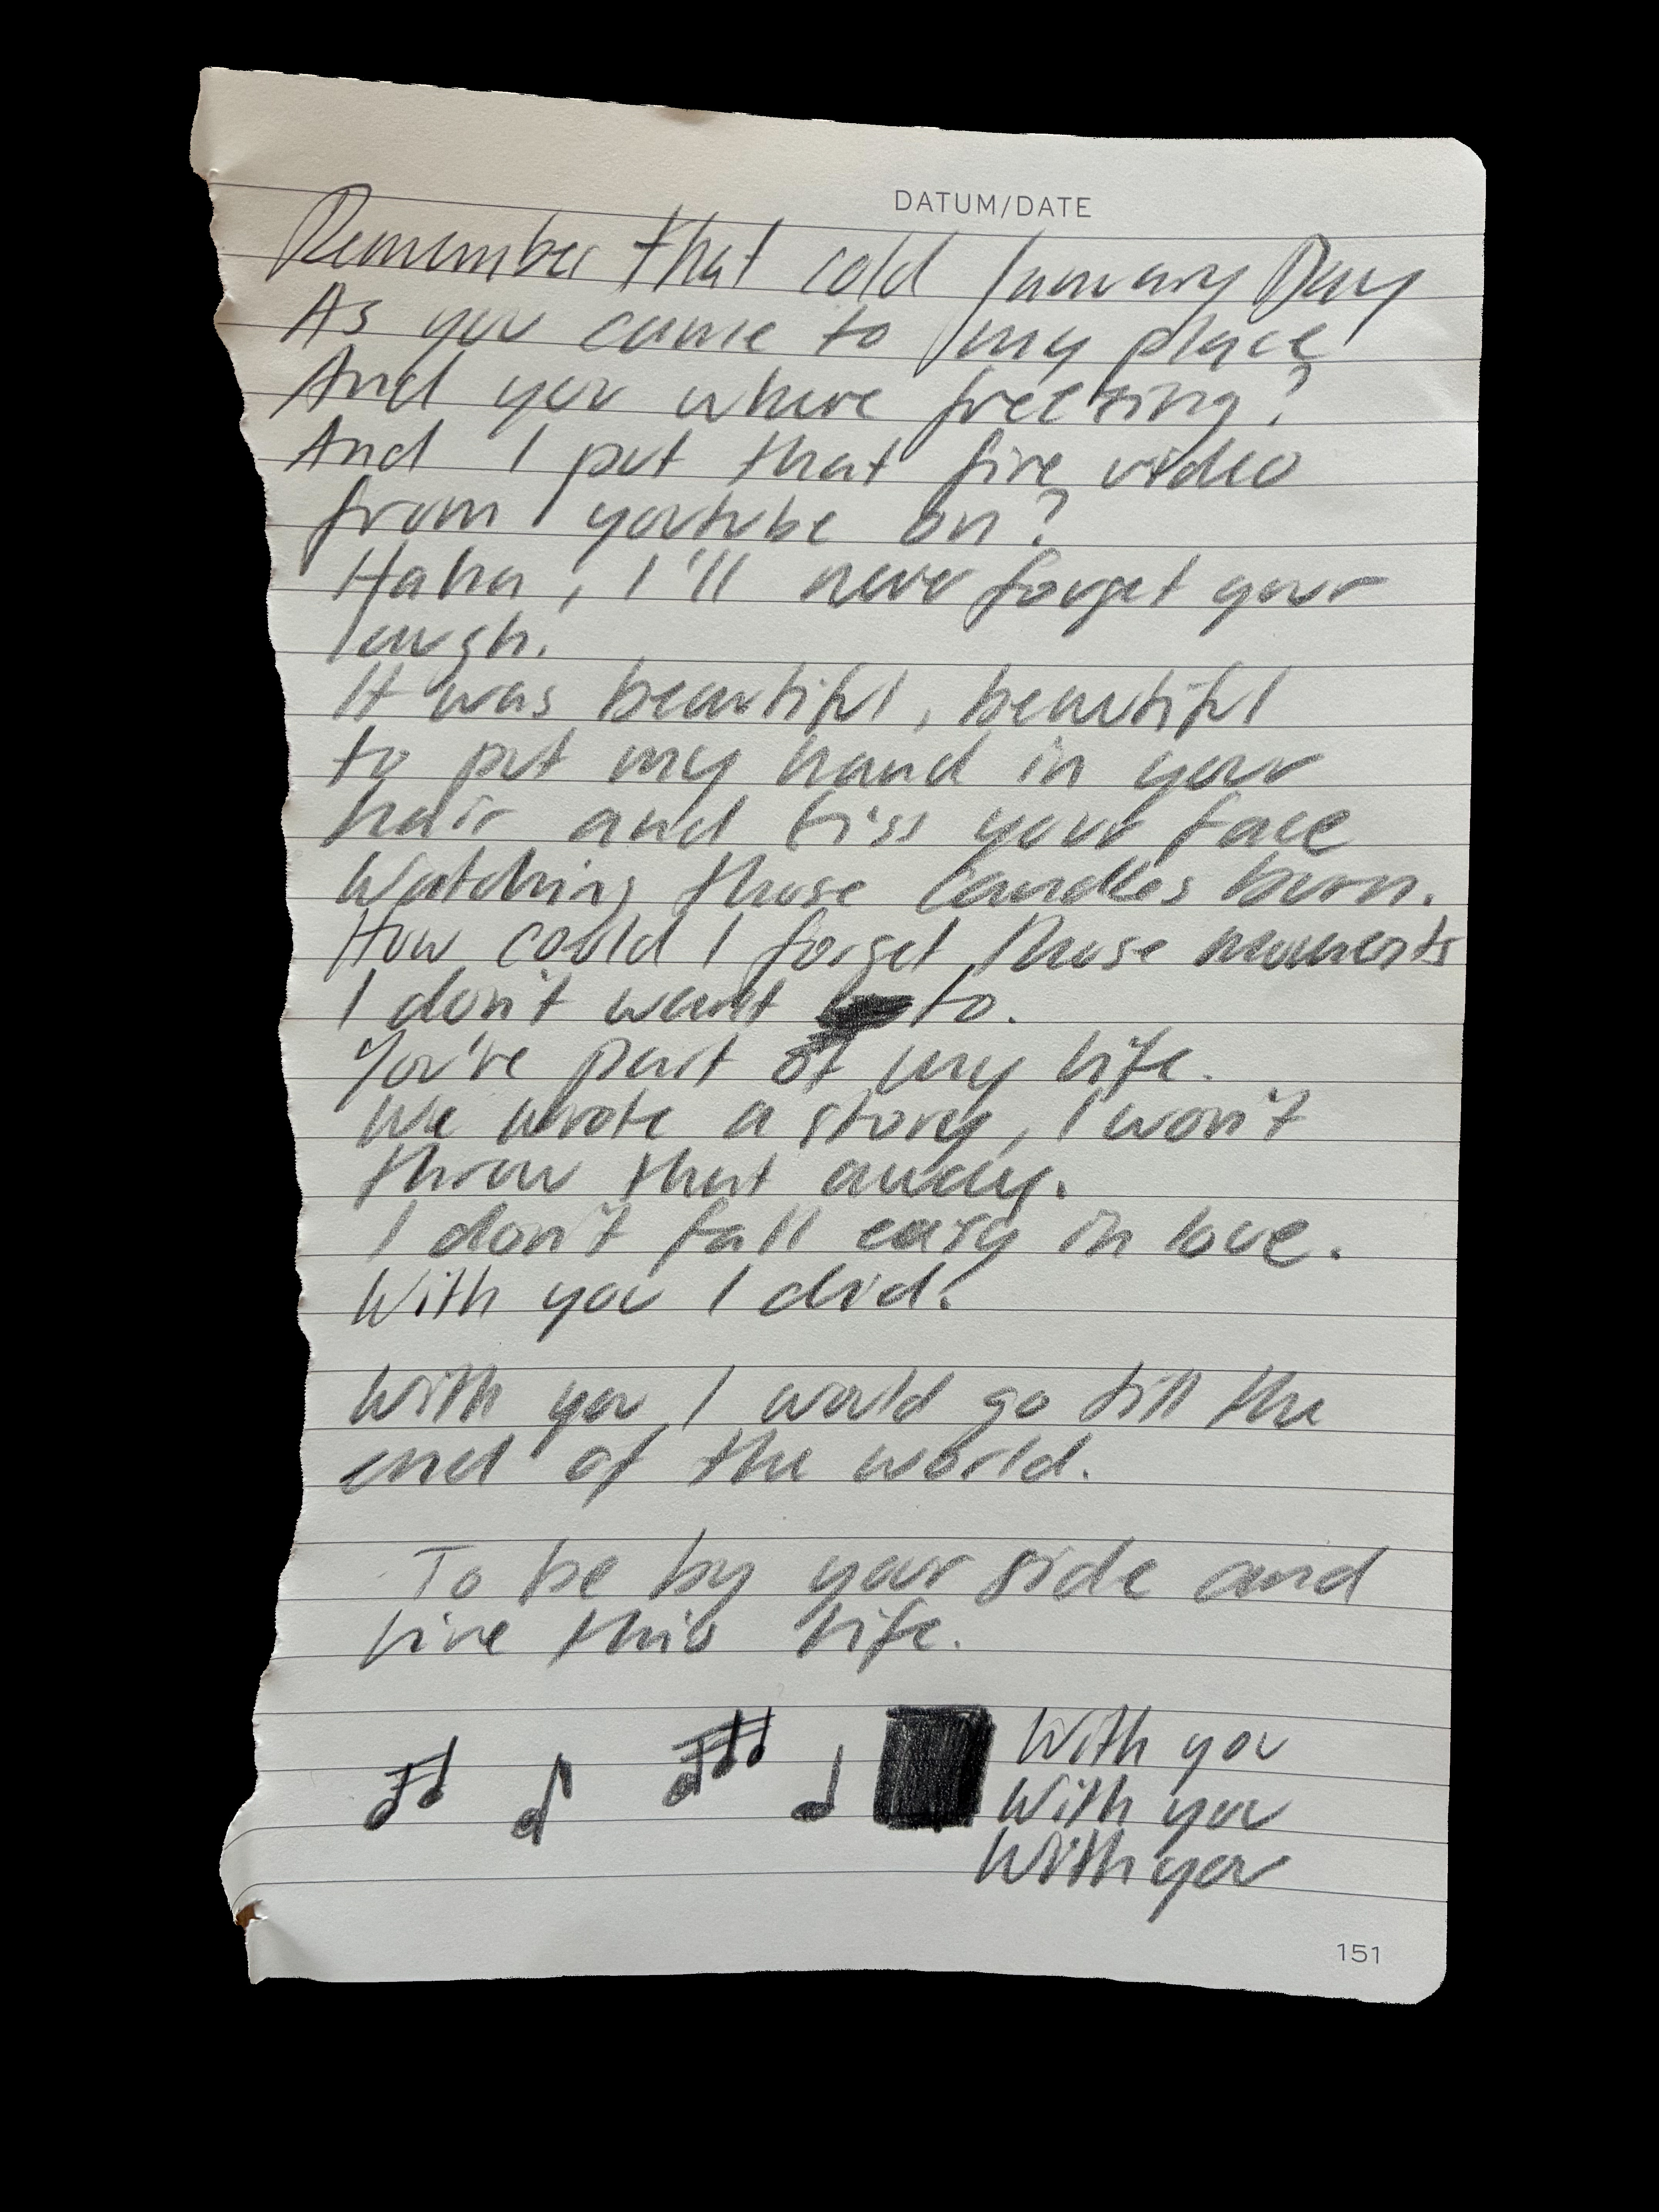 DATUM/DATE
Remember that cold January Day
As you came to my place
And you where freezing?
And I put that fire video
from youtube on?
Haha, I'll never forget your
laugh.
It was beautiful, beautiful
to put my hand in your
hair and kiss your face
Watching those candles burn.
How could I forget those moments
I don't want to.
You're part of my life.
We wrote a story, I won't
throw that away.
I don't fall easy in love.
With you I did.
With you I would go till the
end of the world.
To be by your side and
live this life.
With you
With you
With you
151